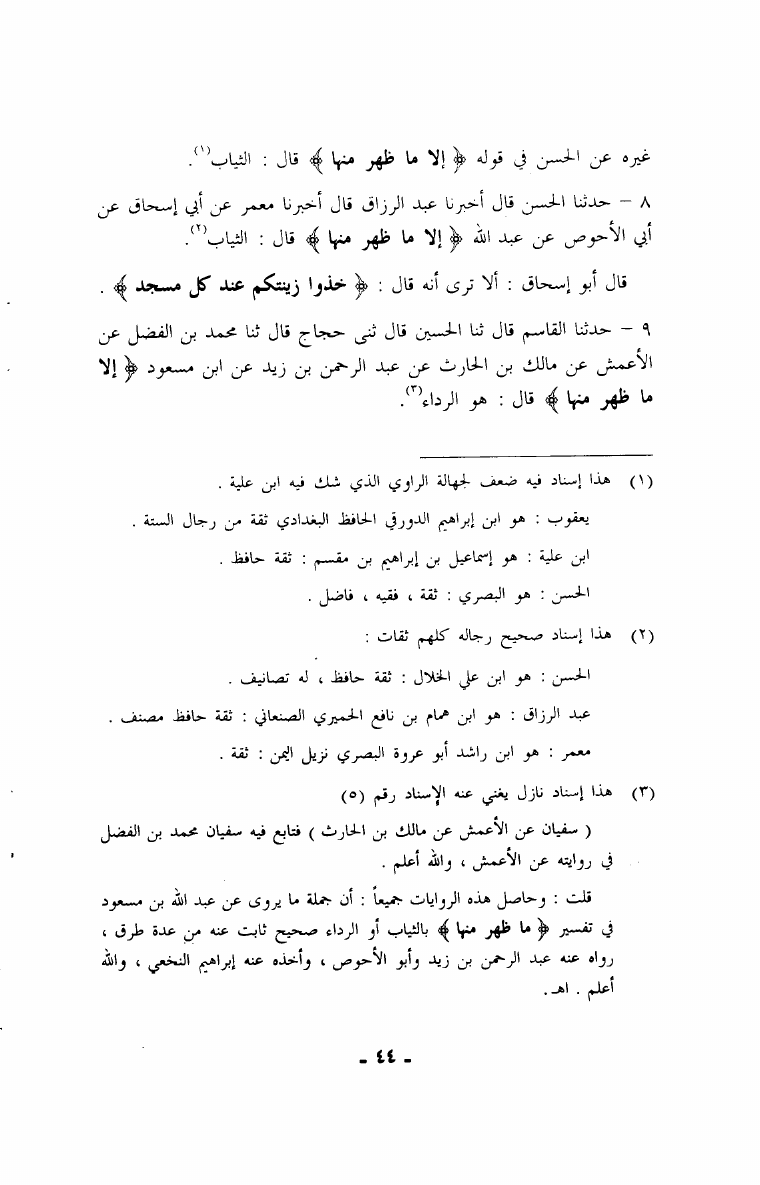 غيره عن الحسن في قوله ﴿ إلا ما ظهر منها ﴾ قال : الثياب(١).
٨ – حدثنا الحسن قال أخبرنا عبد الرزاق قال أخبرنا معمر عن أبي إسحاق عن
أبي الأحوص عن عبد الله ﴿ إلا ما ظهر منها ﴾ قال : الثياب(٢).
قال أبو إسحاق : ألا ترى أنه قال : ﴿ خذوا زينتكم عند كل مسجد ﴾ .
٩ – حدثنا القاسم قال ثنا الحسين قال ثنى حجاج قال ثنا محمد بن الفضل عن
الأعمش عن مالك بن الحارث عن عبد الرحمن بن زيد عن ابن مسعود ﴿ إلا
ما ظهر منها ﴾ قال : هو الرداء(٣).
(١) هذا إسناد فيه ضعف لجهالة الراوي الذي شك فيه ابن علية .
يعقوب : هو ابن إبراهيم الدورقي الحافظ البغدادي ثقة من رجال الستة .
ابن علية : هو إسماعيل بن إبراهيم بن مقسم : ثقة حافظ .
الحسن : هو البصري : ثقة ، فقيه ، فاضل .
(٢) هذا إسناد صحيح رجاله كلهم ثقات :
الحسن : هو ابن علي الخلال : ثقة حافظ ، له تصانيف .
عبد الرزاق : هو ابن همام بن نافع الحميري الصنعاني : ثقة حافظ مصنف .
معمر : هو ابن راشد أبو عروة البصري نزيل اليمن : ثقة .
(٣) هذا إسناد نازل يغني عنه الإسناد رقم (٥)
( سفيان عن الأعمش عن مالك بن الحارث ) فتابع فيه سفيان محمد بن الفضل
في روايته عن الأعمش ، والله أعلم .
قلت : وحاصل هذه الروايات جميعاً : أن جملة ما يروى عن عبد الله بن مسعود
في تفسير ﴿ ما ظهر منها ﴾ بالثياب أو الرداء صحيح ثابت عنه من عدة طرق ،
رواه عنه عبد الرحمن بن زيد وأبو الأحوص ، وأخذه عنه إبراهيم النخعي ، والله
أعلم . اهـ.
- ٤٤ -